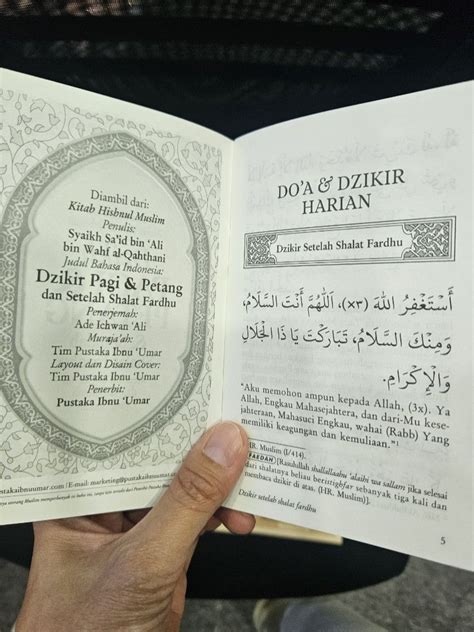 Diambil dari:
Kitab Hishnul Muslim
Penulis:
Syaikh Sa'id bin 'Ali
bin Wahf al-Qathani
Judul Bahasa Indonesia:
Dzikir Pagi & Petang
dan Setelah Shalat Fardhu
Penerjemah:
Ade Ichwan 'Ali
Muraja'ah:
Tim Pustaka Ibnu 'Umar
Layout dan Disain Cover:
Tim Pustaka Ibnu 'Umar
Penerbit:
Pustaka Ibnu 'Umar
DO'A & DZIKIR
HARIAN
Dzikir Setelah Shalat Fardhu
أَسْتَغْفِرُ اللهَ (٣x)، اَللَّهُمَّ أَنْتَ السَّلَامُ،
وَمِنْكَ السَّلَامُ، تَبَارَكْتَ يَا ذَا الْجَلَالِ
وَالْإِكْرَامِ.
"Aku memohon ampun kepada Allah, (3x). Ya
Allah, Engkau Mahasejahtera, dan dari-Mu kese-
jahteraan, Mahasuci Engkau, wahai (Rabb) Yang
memiliki keagungan dan kemuliaan."¹
HR. Muslim (I/414).
FAEDAH [Rasulullah shallallaahu 'alaihi wa sallam jika selesai
dari shalatnya beliau beristighfar sebanyak tiga kali dan
membaca dzikir di atas. (HR. Muslim)].
Dzikir setelah shalat fardhu
5